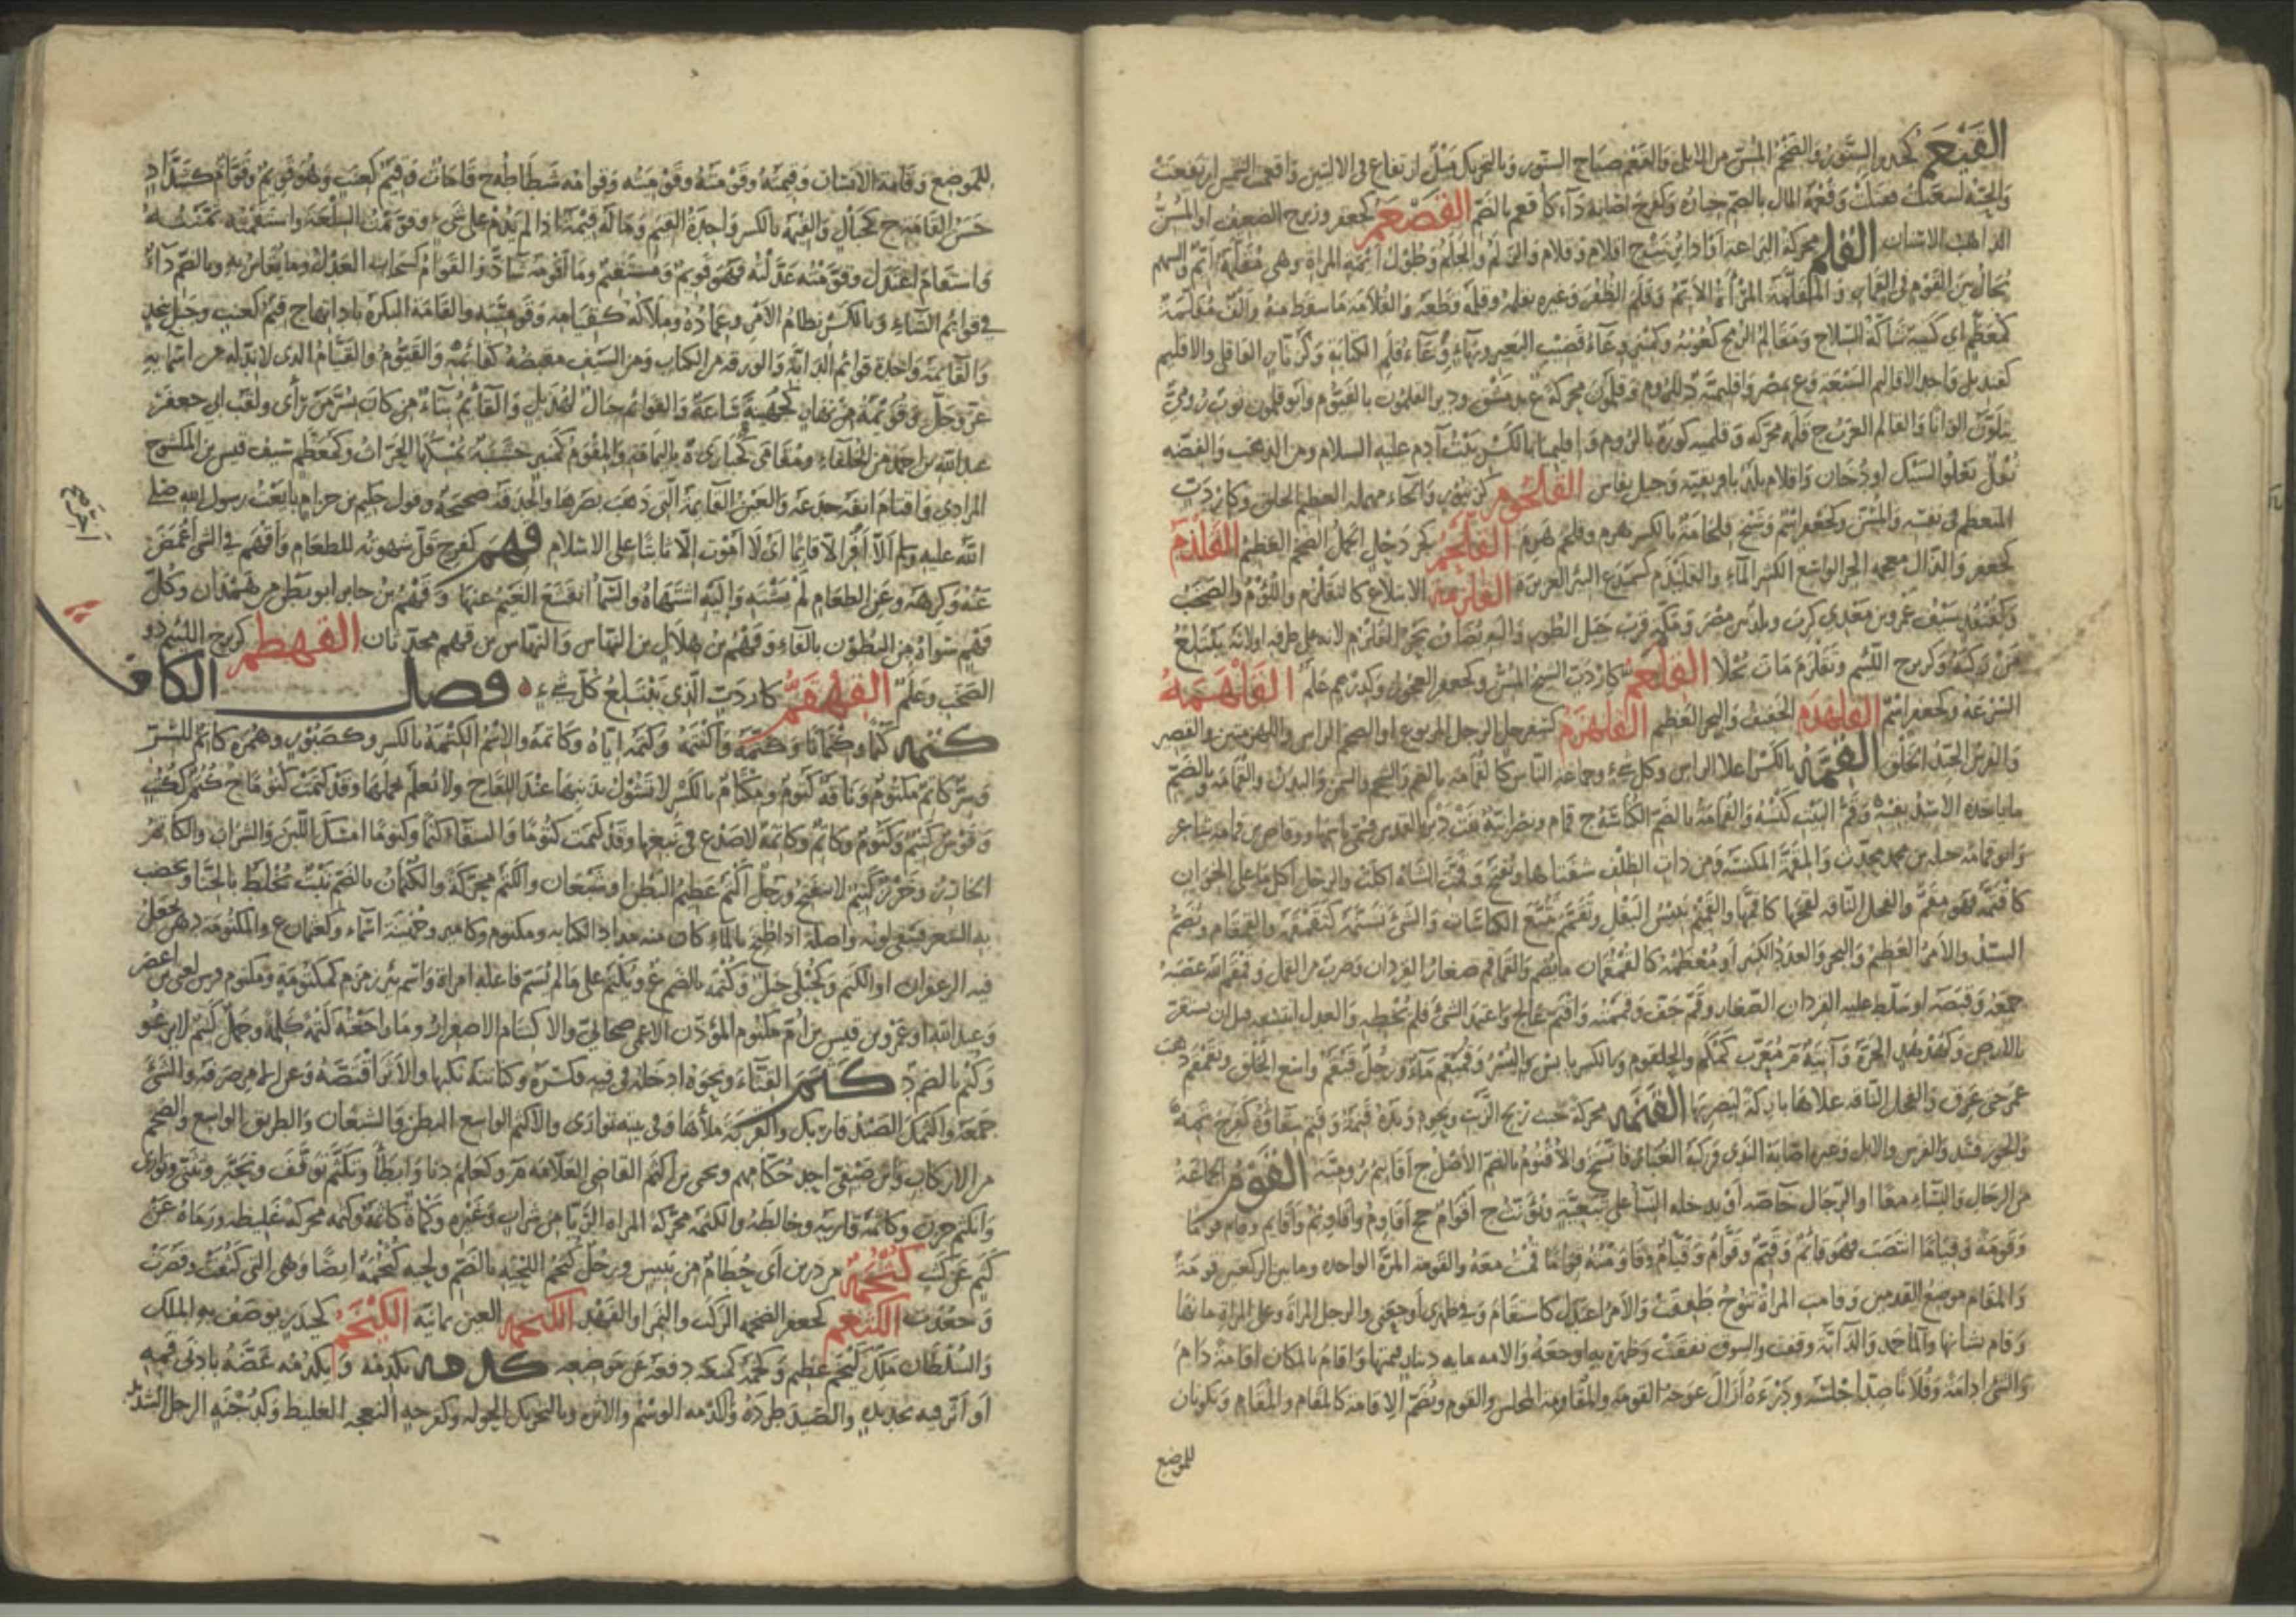 القيعم كحيدر السنور والضخم المسن من الابل والقعم صياح السنور وبالتحريك ميل وارتفاع في الاليتين واقعمت الشمس ارتفعت
والحية لسعت فقتلت وقعمة المال بالضم خياره وكفرح اصابه داء كاقعم بالضم القصعم كجعفر وزبرج الضعيف او المسن
الذاهب الاسنان القلم محركة اليراعة او اذا بريت ج اقلام وقلام والزلم والجلم وطول ايمة المراة وهي مقلمة ايم والسهم
يجال بين القوم في القمار والمقلمة المراة الايم وقلم الظفر وغيره يقلمه وقلمه قطعه والقلامة ما سقط منه والف مقلمة
كمعظم اي كتيبة شاكة السلاح ومقالم الرمح كعوبه وكمنبر وعاء قضيب البعير وبهاء وعاء قلم الكتابة
كقنديل واحد الاقاليم السبعة وع بمصر واقليمية د للروم وقلمون محركة ع بدمشق ودير القلمون بالفيوم وابو قلمون ثوب رومي
يتلون الوانا والقالم العزب ج قلمة محركة وقلمية كورة بالروم واقليميا بالكسر بنت آدم عليه السلام ومن الذهب والفضة
ثفل يعلو السبك او دخان واقلام بلد بافريقية وجبل بفاس القلحوم كزنبور والحاء مهملة العظيم الخلق وكاردب
المتعظم في نفسه والمسن وكجعفر اسم وشيخ قلحامة بالكسر هرم وقلحم هرم القلخم كجردحل الجمل الضخم العظيم القلذم
كجعفر والذال معجمة البحر الواسع الكثير الماء والقليذم كسميدع البئر الغزيرة القلزمة الابتلاع كالتقلزم واللؤم والصخب
وكقنفذ سيف عمرو بن معدي كرب وبلد بين مصر ومكة قرب جبل الطور واليه يضاف بحر القلزم لانه على طرفه او لانه يبتلع
من ركبه وكزبرج اللئيم وتقلزم مات بخلا القلعم كاردب الشيخ المسن وكجعفر العجوز وكدرهم علم القلهمة
السرعة وكجعفر اسم القلهذم الخفيف والبحر العظيم القلهزم كسفرجل الرجل المربوع او الضخم الراس واللهزمتين والقصير
والفرس الجيد الخلق القمة بالكسر اعلا الراس وكل شيء وجماعة الناس كالقمامة بالفتح والشحم والسمن والبدن والقامة بالضم
ما ياخذه الاسد بفيه وقم البيت كنسه والقمامة بالضم الكناسة ج قمام ونصرانية بنت ديرا بالقدس فسمي باسمها ووقاص بن قمامة شاعر
وابو قمامة جبلة بن محمد محدث والمقمة المكنسة ومن ذات الظلف شفتاها وتفتح وقمت الشاة اكلت والرجل اكل ما على الخوان
كاقتمه فهو مقم والفحل الناقة لقحها كاقمها والقميم يبيس البقل وتقمم تتبع الكناسات والشيء تسنمه كتقمقمه والقمقام ويضم
السيد والامر العظيم والبحر والعدد الكثير او معظمه كالقمقمان ما يضم والقماقم صغار القردان وضرب من القمل وقمقم الله عصبه
جمعه وقبضه او سلط عليه القردان الصغار وقم جف وقممته واقتم عالج واعتمد الشيء فلم يخطه والعدل انتسفه قبل ان يستقر
بالارض وكهدهد الجرة وآنية م معرب كمكم والحلقوم وبالكسر يابس البسر وقميقم ماء ورجل قيقم واسع الخلق وتقمقم ذهب
غمر حتى غرق والفحل الناقة علاها باركة ليضربها القنمة محركة خبث ريح الزيت ونحوه ويده قنمة وقنم سقاؤه كفرح تمه
والجوز فسد والفرس والابل وغيره اصابه الندى فركبه الغبار فاتسخ والاقنوم بالضم الاصل ج اقانيم رومية القوم الجماعة
من الرجال والنساء معا او الرجال خاصة او يدخله النساء على تبعية ويؤنث ج اقوام جج اقاوم واقاويم واقايم وقام قوما
وقومة وقياما انتصب فهو قائم وقيم وقوام وقيام وقاومته قواما قمت معه والقومة المرة الواحدة وما بين الركعتين قومة
والمقام موضع القدمين وقامت المراة تنوح طفقت والامر اعتدل كاستقام وفي ظهري اوجعني والرجل المراة وعلى المراة مانها
وقام بشانها والماء جمد والدابة وقفت والسوق نفقت وظهره به اوجعه والامة مايه دينار بلغت قيمتها واقام بالمكان اقامة دام
والشيء ادامه وفلانا ضد اجلسه ودرءه ازال عوجه القومة والمقامة المجلس والقوم ويضم الاقامة كالمقام والمقام ويكونان
للموضع
للموضع وقامة الانسان وقيمته وقومته وقوميته وقوامه شطاطه ج قامات وقيم كعنب وهو قويم وقوام كشداد
حسن القامة ج كجبال والقيمة بالكسر واحدة القيم وما له قيمة اذا لم يدم على شيء وقومت السلعة واستقمته ثمنته
واستقام اعتدل وقومته عدلته فهو قويم ومستقيم وما اقومه شاذ والقوام كسحاب العدل وما يعاش به وبالضم داء
في قوائم الشاء وبالكسر نظام الامر وعماده وملاكه كقيامه وقوميته والقامة البكرة باداتها ج قيم كعنب وجبل بنجد
والقائمة واحدة قوائم الدابة والورقة من الكتاب ومن السيف مقبضه كقائمه والقيوم والقيام الذي لا ند له من اسمائه
عز وجل وقويمة من نهار كجهينة ساعة والقوائم جبال لهذيل والقائم بناء من كان بسر من رأى ولقب ابي جعفر
عبد الله بن احمد من الخلفاء ومقامى كحبارى ة باليمامة والمقوم كمنبر خشبة يمسكها الحراث وكمعظم سيف قيس بن المكشوح
المرادي واقتام انفه جدعه والعين القائمة التي ذهب بصرها والحدقة صحيحة وقول حكيم بن حزام بايعت رسول الله صلى
الله عليه وسلم ألا أخر الا قائما اي لا اموت الا ثابتا على الاسلام قهم كفرح قل شهوته للطعام واقهم في الشيء اغمض
عنه وكرهه وعن الطعام لم يشته واليه اشتهاه والسماء انقشع الغيم عنها وقهم بن جابر ابو بطن من همدان وكل
فهم سواه من البطون بالفاء وقهم بن هلال بن النهاس والنهاس بن قهم محدثان القهطم كزبرج اللئيم ذو
الصخب وعلم القهقم كاردب الذي يبتلع كل شيء فصل الكاف
كتمه كتما وكتمانا وكتمه واكتتمه وكتمه اياه وكاتمه والاسم الكتمة بالكسر وكصبور وهمزة كاتم للسر
وسر كاتم مكتوم وناقة كتوم ومكتام بالكسر لا تشول بذنبها عند اللقاح ولا يعلم بحملها وقد كتمت كتوما ج كتم ككتب
وقوس كتيم وكتوم وكاتم وكاتمة لا صدع في نبعها وقد كتمت كتوما والسقاء كتما وكتوما امسك اللبن والشراب والكاتم
الخارز وخرز كتيم لا ينضح ورجل اكتم عظيم البطن او شبعان والكتم محركة والكتمان بالضم نبت يخلط بالحناء ويخضب
به الشعر فيبقى لونه واصله اذا طبخ بالماء كان منه مداد للكتابة ومكتوم وكامير وجهينة اسماء وكعثمان ع والمكتومة دهن يجعل
فيه الزعفران او الكتم وكحبلى جبل وكتمة بالضم ع ويكتم على ما لم يسم فاعله امراة واسم بئر زمزم كمكتومة ومكتوم فرس لغني بن اعصر
وعبد الله او عمرو بن قيس بن ام مكتوم المؤذن الاعمى صحابي والاكتتام الاصفرار وما راجعته كتمة كلمة وجمل كتيم لا يرغو
وكتم بالضم د كثم القثاء ونحوه ادخله في فيه فكسره وكنانته نكبها والاثر اقتصه وعن الامر صرفه والشيء
جمعه واكثمك الصيد قاربك والقربة ملأها وفي بيته توارى والاكثم الواسع البطن والشبعان والطريق الواسع والضخم
من الاركاب وابن صيفي احد حكامهم ويحيى بن اكثم القاضي العلامة م وكعلم دنا وابطأ وتكثم توقف وتحير وتثنى وتوارى
وانكثم حزن وكاثمه قاربه وخالطه والكثمة محركة المراة الريا من شراب وغيره وكماة كاثمة وكثمة محركة غليظة ورماه عن
كثم عن كثب كثحمة من درين اي حطام من يبيس ورجل كثحم اللحية بالضم ولحية كثحمة ايضا وهي التي كثفت وقصرت
وجعدت الكثعم كجعفر الضخم الركب والنمر او الفهد الكحمة العين يمانية الكيخم كحيدر يوصف به الملك
والسلطان ملك كيخم عظيم وكخمه كمنعه دفعه عن موضعه كدمه يكدمه ويكدمه عضه بادنى فمه
او اثر فيه بحديدة والصيد طرده والكدمة الوسم والاثر وبالتحريك الحركة وكفرحة النعجة الغليظة وكدجنة الرجل الشديد